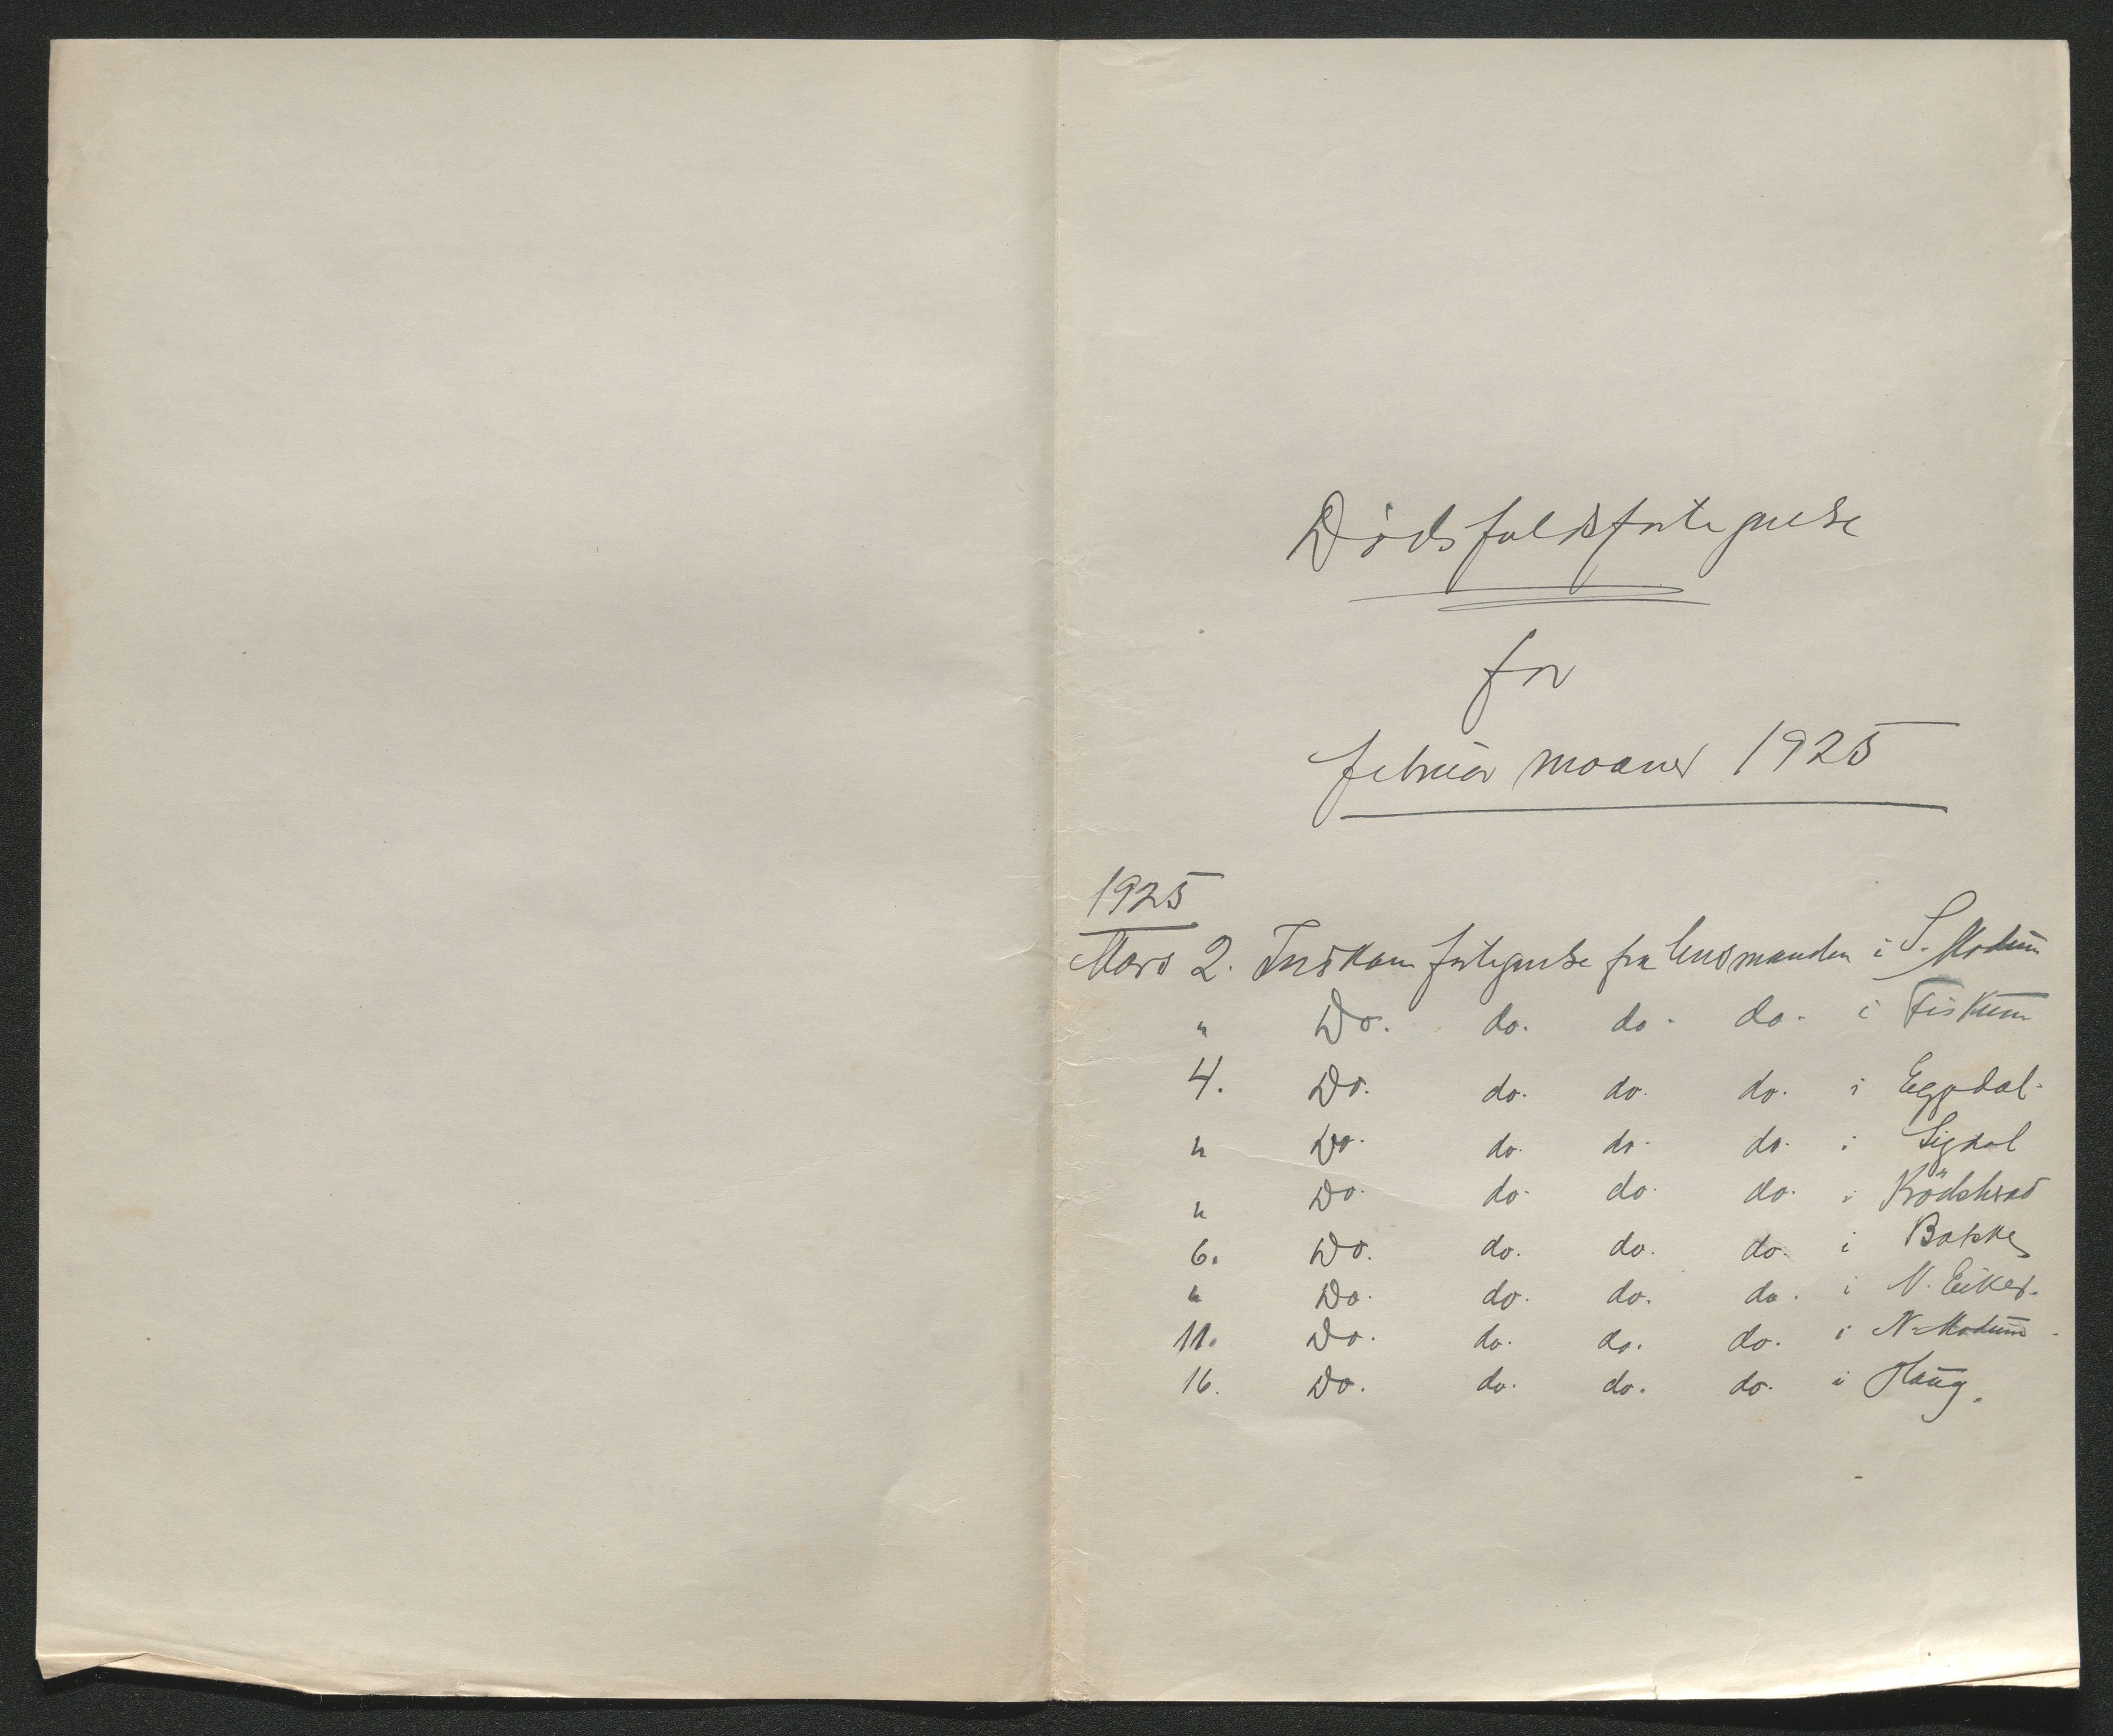 Dødsfaldsfortegnelse
for
februar maaned 1925
1925
Mars 2. Innkom fortegnelse fra lensmanden i S. Modum
" Do. do. do. do. i Fiskum
4. Do. do. do. do. i Eggedal.
" Do. do. do. do. i Sigdal
" Do. do. do. do. i Krödsherad
6. Do. do. do. do. i Bakke
" Do. do. do. do. i N. Eiker.
11. Do. do. do. do. i N. Modum.
16. Do. do. do. do. i Haug.